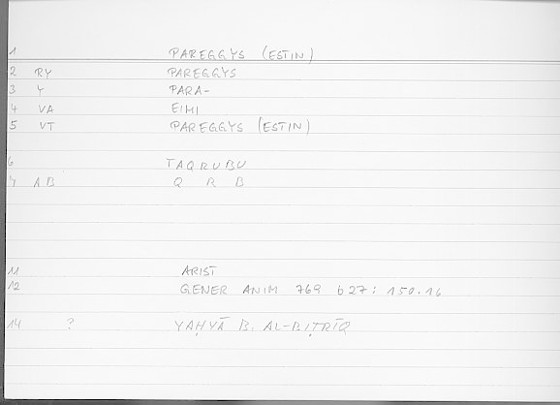 1 PAREGGYS (ESTIN)
2 RY PAREGGYS
3 Y PARA-
4 VA EIMI
5 VT PAREGGYS (ESTIN)
6 TAQRUBU
7 AB Q R B
11 ARIST
12 GENER ANIM 769 b27: 150.16
14 ? YAḤYĀ B. AL-BIṬRĪQ